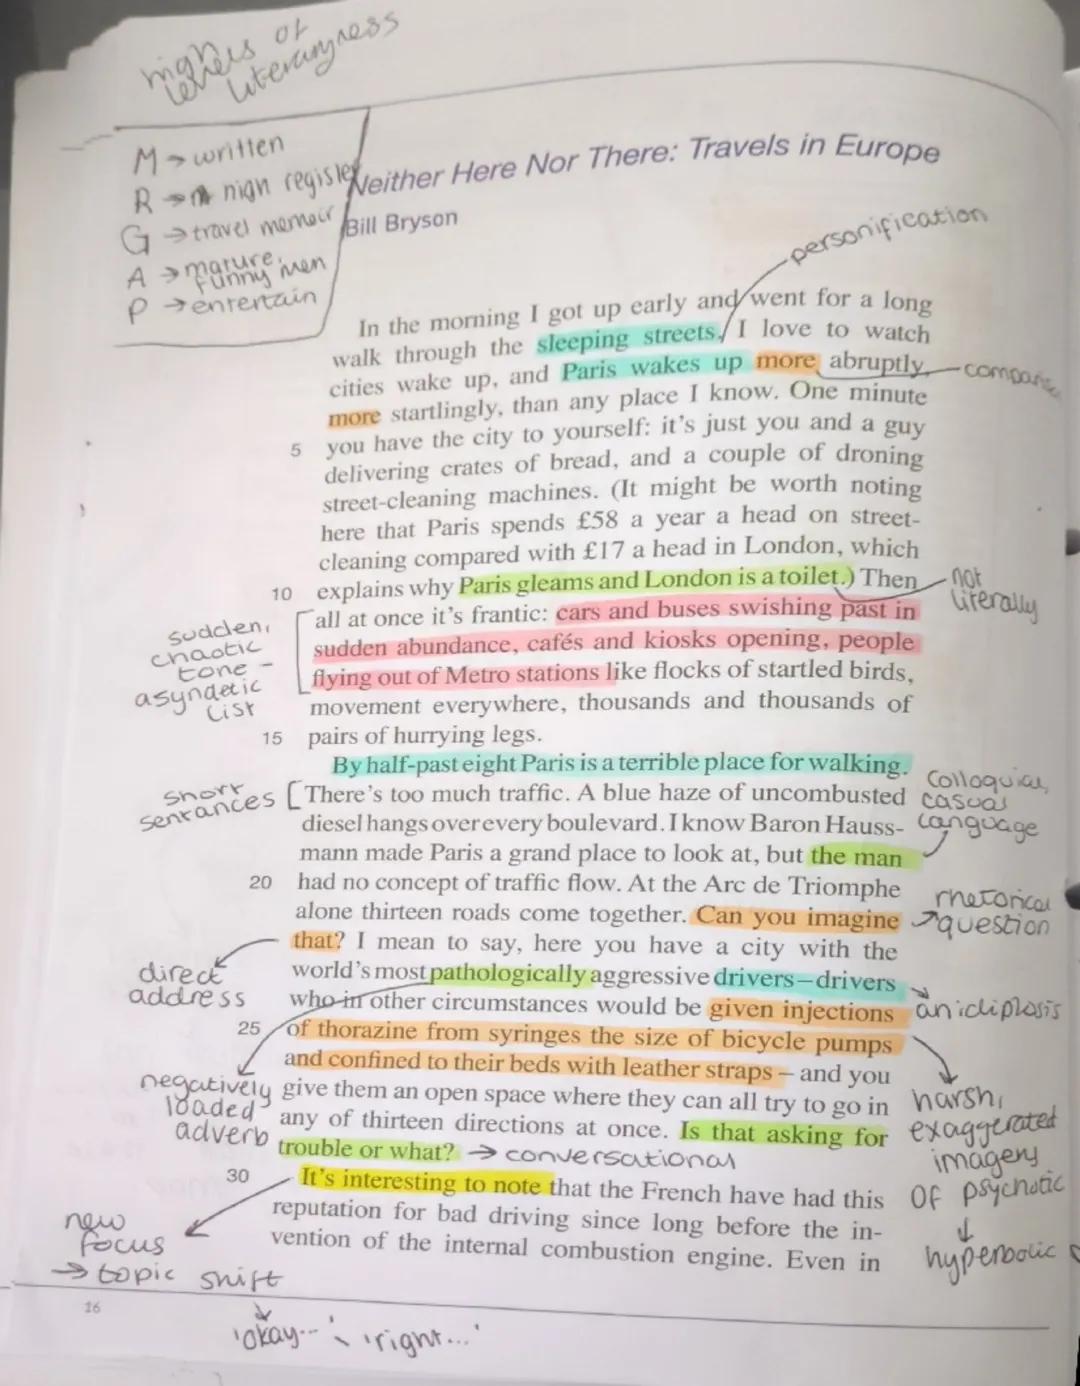 higher levels of
literaryness
M → written
R → high register
G → travel memoir
A → mature,
funny men
P → entertain
Neither Here Nor There: Travels in Europe
Bill Bryson
personification
In the morning I got up early and went for a long
walk through the sleeping streets. I love to watch
cities wake up, and Paris wakes up more abruptly,
more startlingly, than any place I know. One minute
5 you have the city to yourself: it's just you and a guy
delivering crates of bread, and a couple of droning
street-cleaning machines. (It might be worth noting
here that Paris spends £58 a year a head on street-
cleaning compared with £17 a head in London, which
10 explains why Paris gleams and London is a toilet.) Then
all at once it's frantic: cars and buses swishing past in
sudden abundance, cafés and kiosks opening, people
flying out of Metro stations like flocks of startled birds,
movement everywhere, thousands and thousands of
15 pairs of hurrying legs.
not
literally
sudden,
chaotic
tone -
asyndetic
list
By half-past eight Paris is a terrible place for walking.
There's too much traffic. A blue haze of uncombusted
diesel hangs over every boulevard. I know Baron Hauss-
mann made Paris a grand place to look at, but the man
20 had no concept of traffic flow. At the Arc de Triomphe
alone thirteen roads come together. Can you imagine
that? I mean to say, here you have a city with the
world's most pathologically aggressive drivers – drivers
who in other circumstances would be given injections
25 of thorazine from syringes the size of bicycle pumps
and confined to their beds with leather straps – and you
give them an open space where they can all try to go in
any of thirteen directions at once. Is that asking for
trouble or what? → conversational
short
sentances
colloquial,
casual
language
rhetorical
question
direct
address
anidiplosis
negatively
loaded
adverb
harsh,
exaggerated
imagery
of psychotic
↓
hyperbolic
30 It's interesting to note that the French have had this
reputation for bad driving since long before the in-
vention of the internal combustion engine. Even in
new
focus
→ topic shift
↓
'okay...' \ 'right...'
16